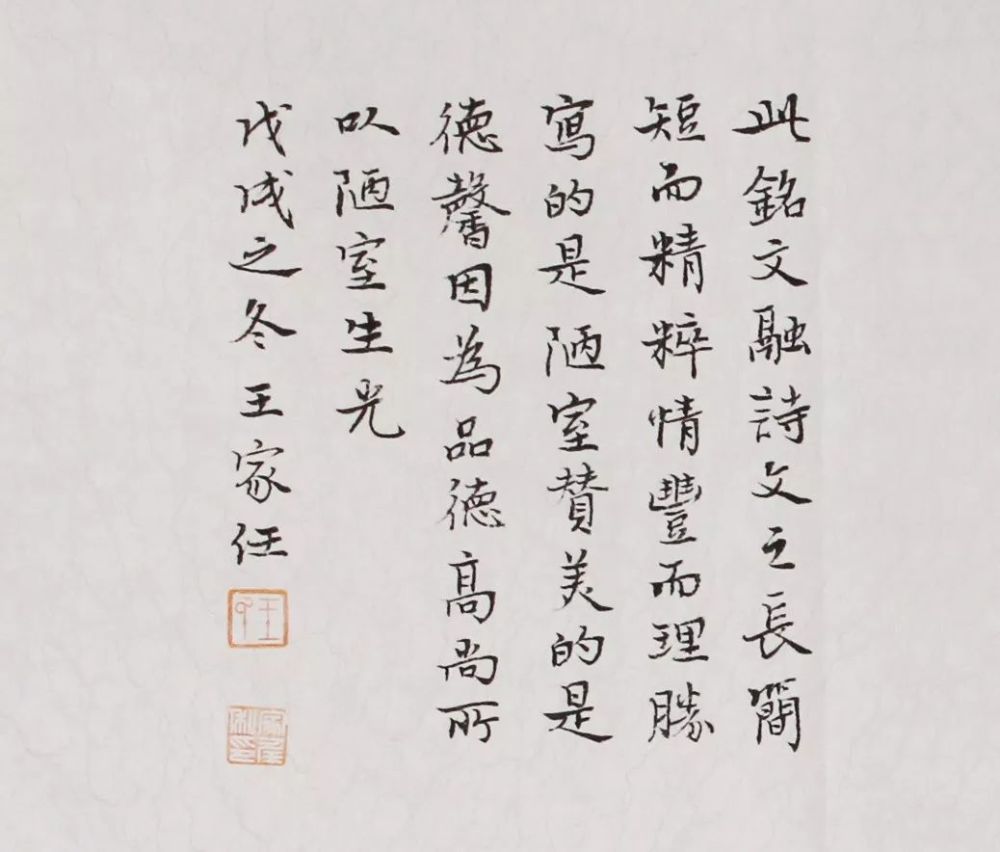 此銘文融詩文之長簡
短而精粹情豐而理勝
寫的是陋室贊美的是
德馨因為品德高尚所
以陋室生光
戊戌之冬王家任